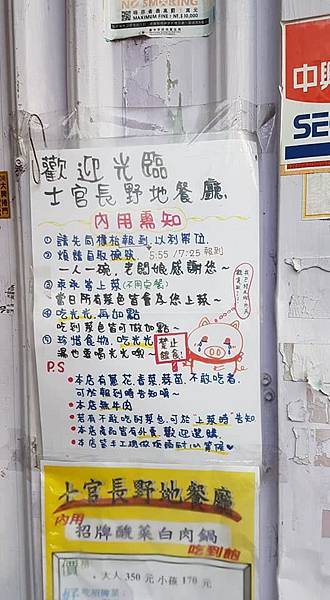 NO SMOKING
MAXIMUM FINE: NT.$10,000
歡迎光臨
士官長野地餐廳
內用需知
① 請先向櫃檯報到以利帶位
② 煩請自取碗筷 5:55/7:25報到
一人一碗，老闆娘感謝您～
③ 乖乖等上菜(不用桌餐)
當日所有菜色皆會為您上菜～
④ 吃光光，再加點
吃到菜色皆可做加點～
⑤ 珍惜食物，吃光光
湯也要喝光光哦～
禁止
餓食!
P.S
本店有蔥花、香菜、蒜苗，不敢吃者，
可於報到時告知唷～
本店無牛肉
若有不敢吃到菜色，可於"上菜時"告知
本店產品皆有外賣，歡迎選購
中興
SE
士官長野地餐廳
內用
招牌酸菜白肉鍋
吃到飽
價
．大人350元 小孩170元